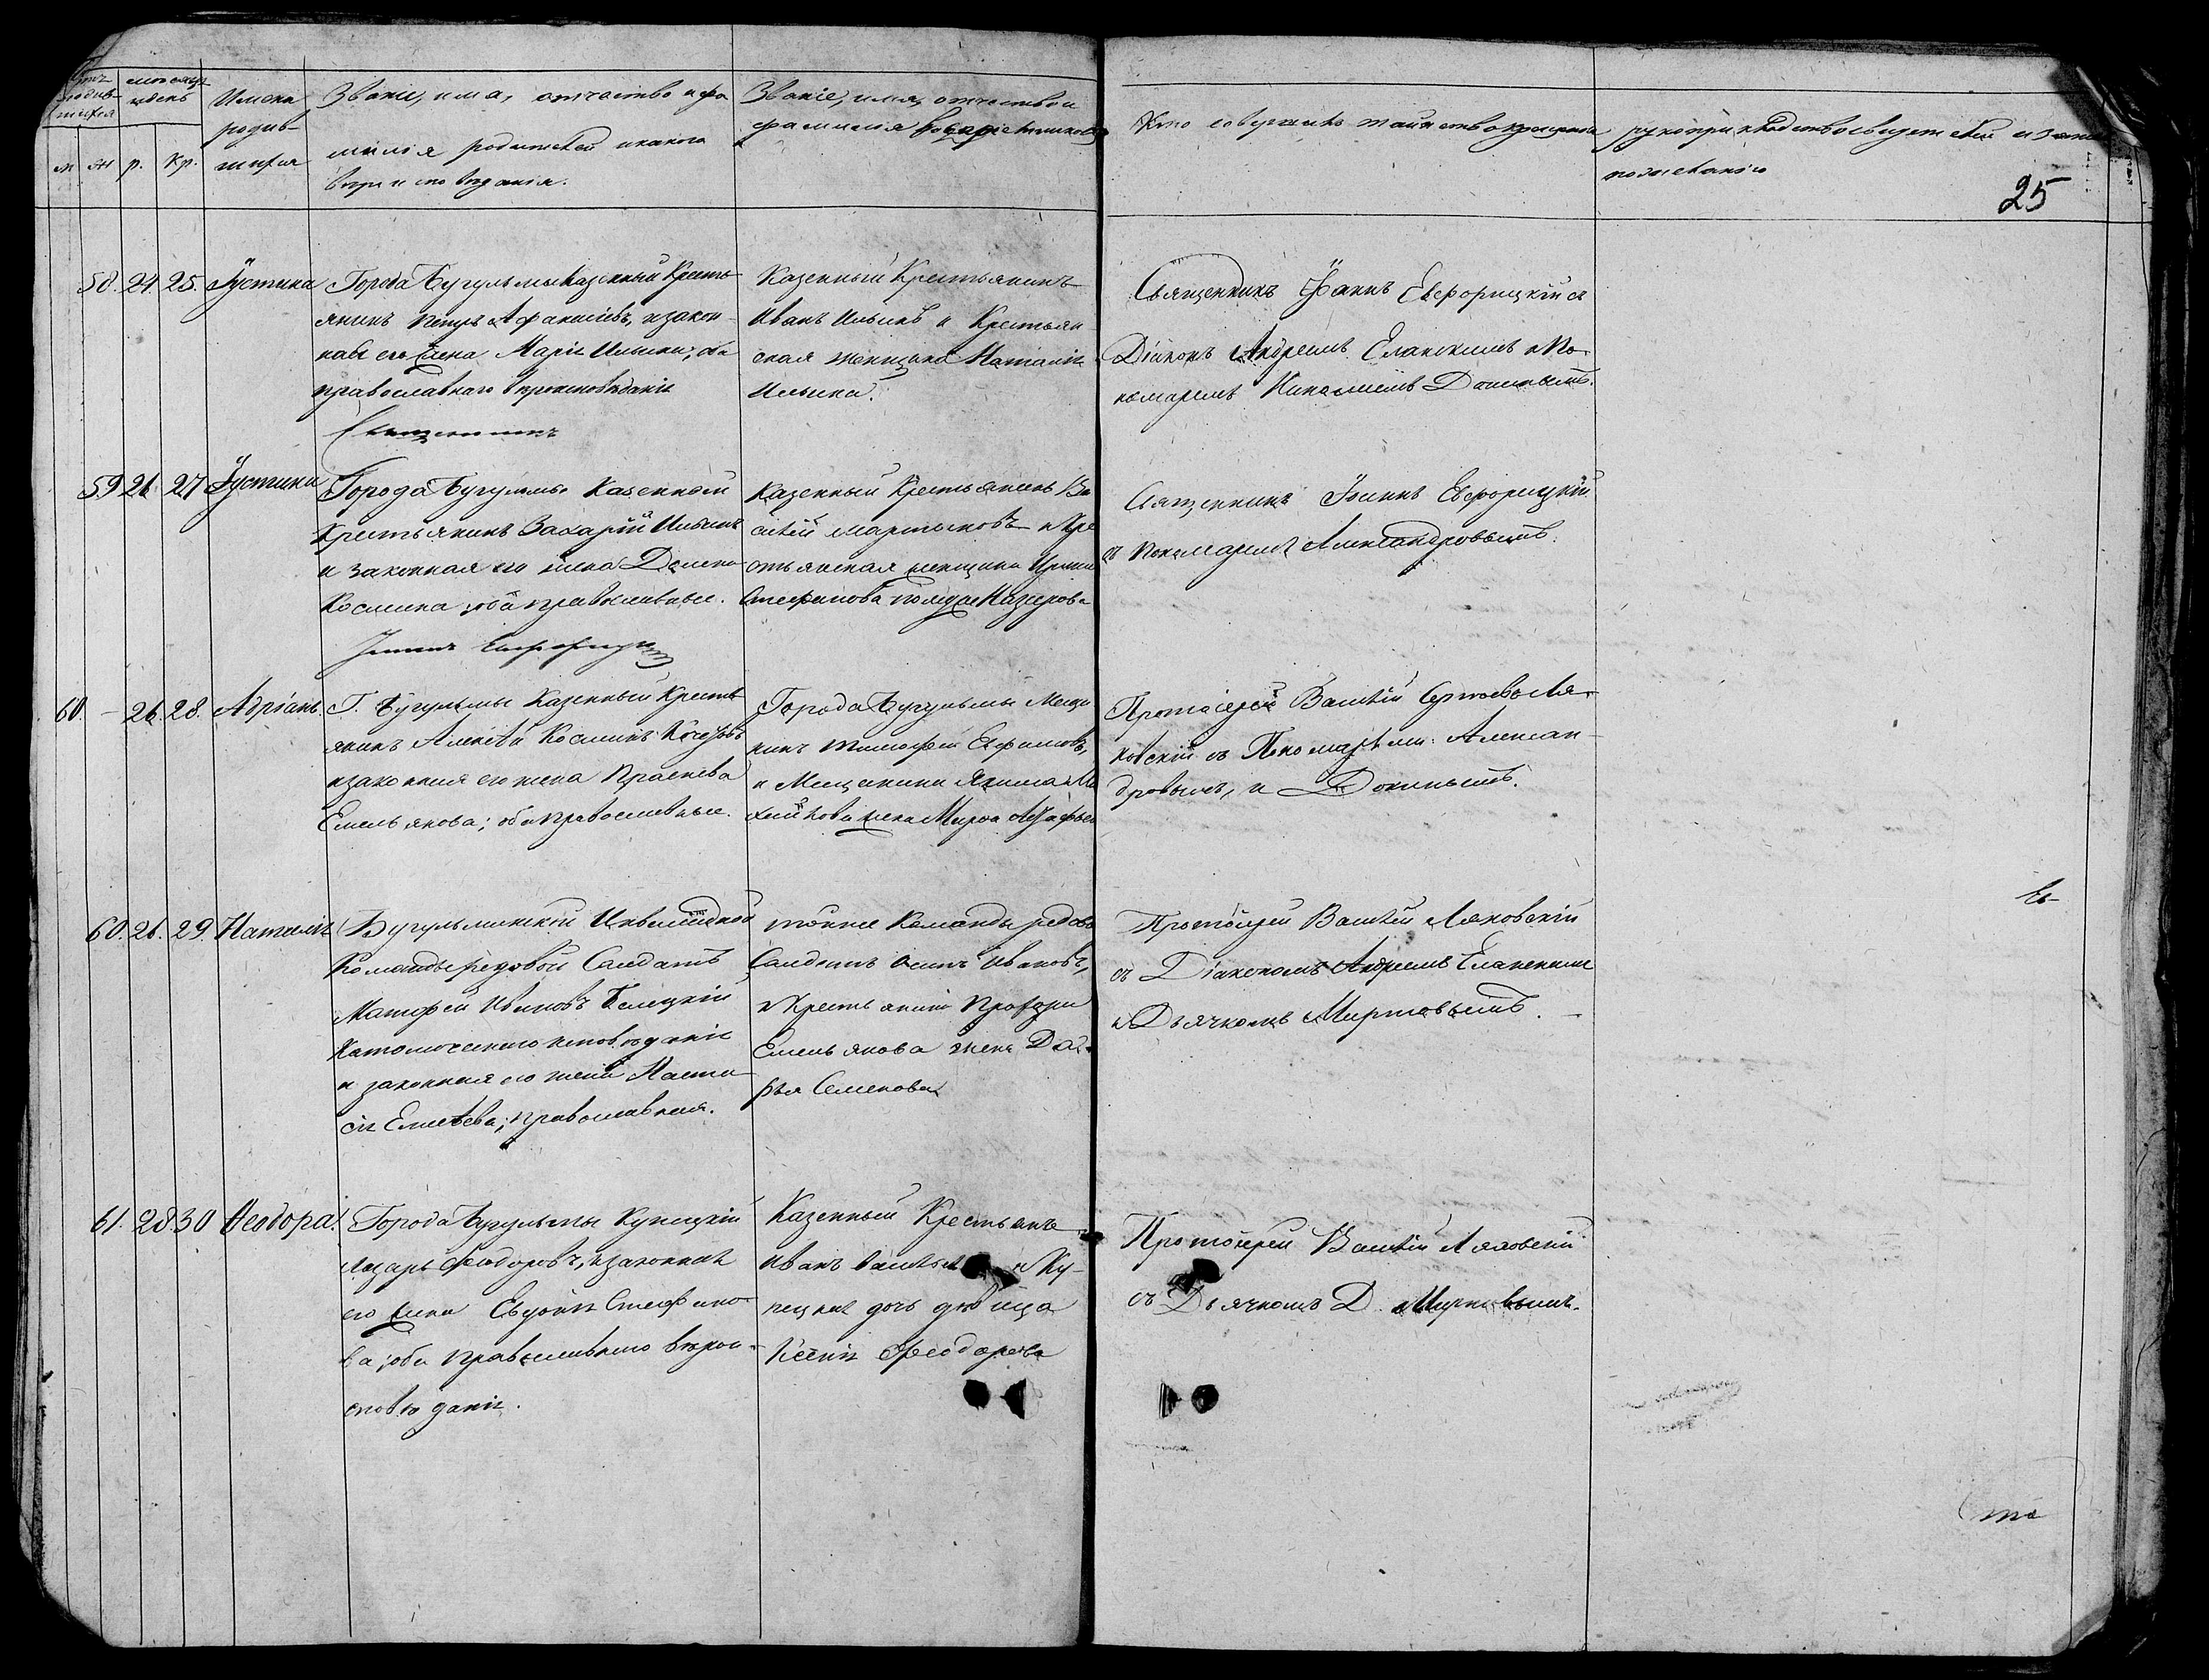 мѣсяцъ
и день
м. ж р. кр.
Имена
родив-
шихся
Званіе, имя, отчество и фа
милія родителей и какого
вѣроисповѣданія.
Званіе, имя, отчество и
фамилія воспріемниковъ
Кто совершалъ таинство крещенія
рукоприкладство свидетелей
по желанію
25
58. 24. 25. Іустина
Города Бугульмы казенный Кресть-
янинъ Петръ Афанасьевъ, и закон-
ная его жена Марія Ильина; оба
православнаго вѣроисповѣданія
Священникъ
Казенный Крестьянинъ
Иванъ Ильинъ и Крестьян-
ская женщина Наталія
Ильина.
Священникъ Іоаннъ Евфорицкій съ
Діакономъ Андреемъ Еланскимъ и По-
номаремъ
59 26 27 Іустина
Города Бугульмы Казенный
Крестьянинъ Захарій Ильинъ
и законная его жена Домна
Космина; оба православные.
Іоаннъ Евфорицкій
Казенный Крестьянинъ Ва
силій Мартыновъ и Кре
стьянская женщина Ирина
Стефанова
Священникъ Іоаннъ Евфорицкій
съ Пономаремъ Александровымъ.
60. - 26. 28. Адріанъ.
Г. Бугульмы Казенный Кресть-
янинъ Алексѣй Косминъ
и законная его жена Праскева
Емельянова; оба православные.
Города Бугульмы Меща
нинъ Тимофей Ефимовъ,
и Мещанина
жена Марфа
Протоіерей Василій Ля-
ховскій съ Пономарями: Алексан-
дровымъ, и
60. 26. 29. Наталія
Бугульминской Инвалидной
Команды рядовой Салдатъ
Матфей Ивановъ Белецкій
Католическаго исповѣданія
и законная его жена Наста-
сія Елисѣева; православная.
тойже Команды рядовой
Салдатъ Осипъ Ивановъ,
и Крестьянина
Емельянова жена Дар-
рья Семенова
Протоіерей Василій Ляховскій
съ Діакономъ Андреемъ Еланскимъ
и Дьячкомъ Миртовымъ.
61. 28. 30 Ѳеодора.
Города Бугульмы Купецкій
Лазарь Ѳеодоровъ, и законная
его жена Евдокія Стефано-
ва; оба православнаго вѣрои-
сповѣданія.
Казенный Крестьянъ
Иванъ и Ку-
пецкая дочь дѣвица
Ксенія Феодорова
Протоіерей Василій Ляховскій
съ Дьячкомъ Д. Миртовымъ.